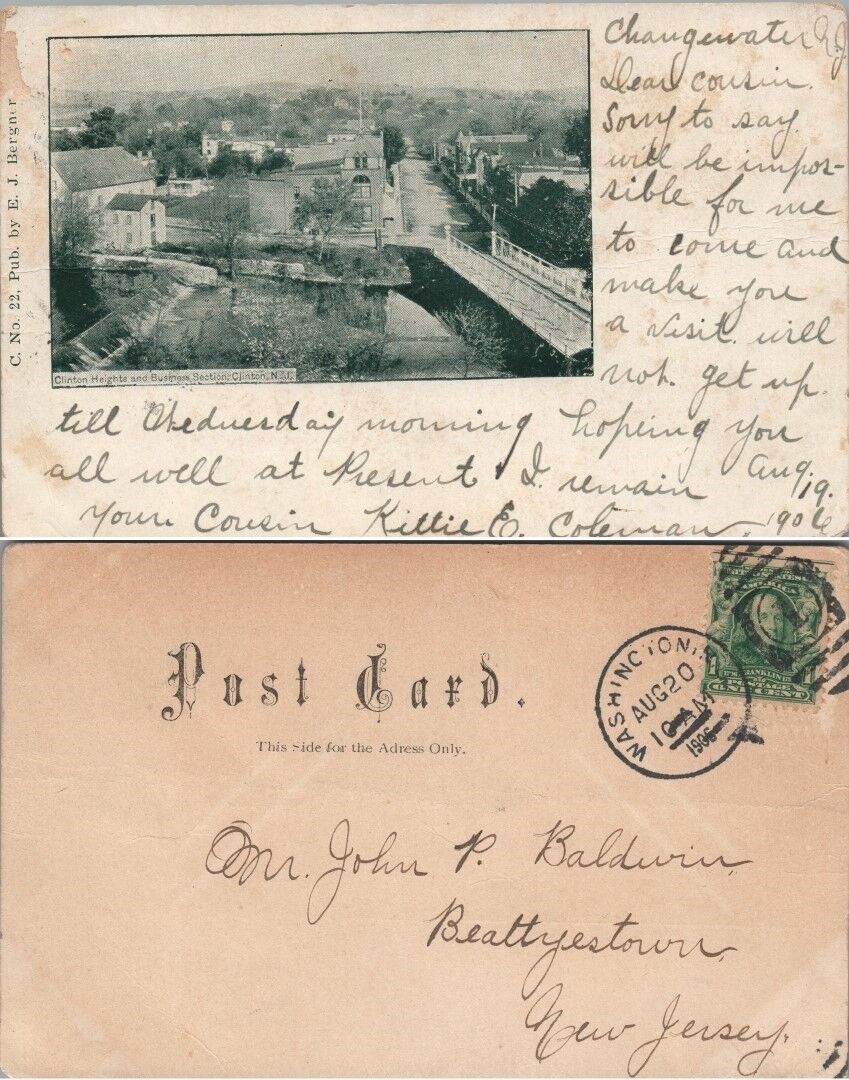 Changewater N.J
Dear cousin.
Sorry to say
will be impos-
sible for me
to come and
make you
a visit. will
not. get up.
till Wednesday morning hoping you
all well at Present & I. remain
Aug 19.
Your. Cousin Kittie E. Coleman. 1906
C. No. 22, Pub. by E. J. Bergner
Clinton Heights and Business Section, Clinton, N.J.
Post Card.
This Side for the Adress Only.
WASHINGTON, N.
AUG 20
10 AM
1906
UNITED STATES OF
AMERICA
1 B'N. FRANKLIN 1
POSTAGE
ONE CENT
Mr. John P. Baldwin,
Beattyestown,
New Jersey.